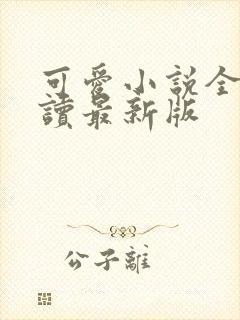 可愛小說全
讀最新版
公子離